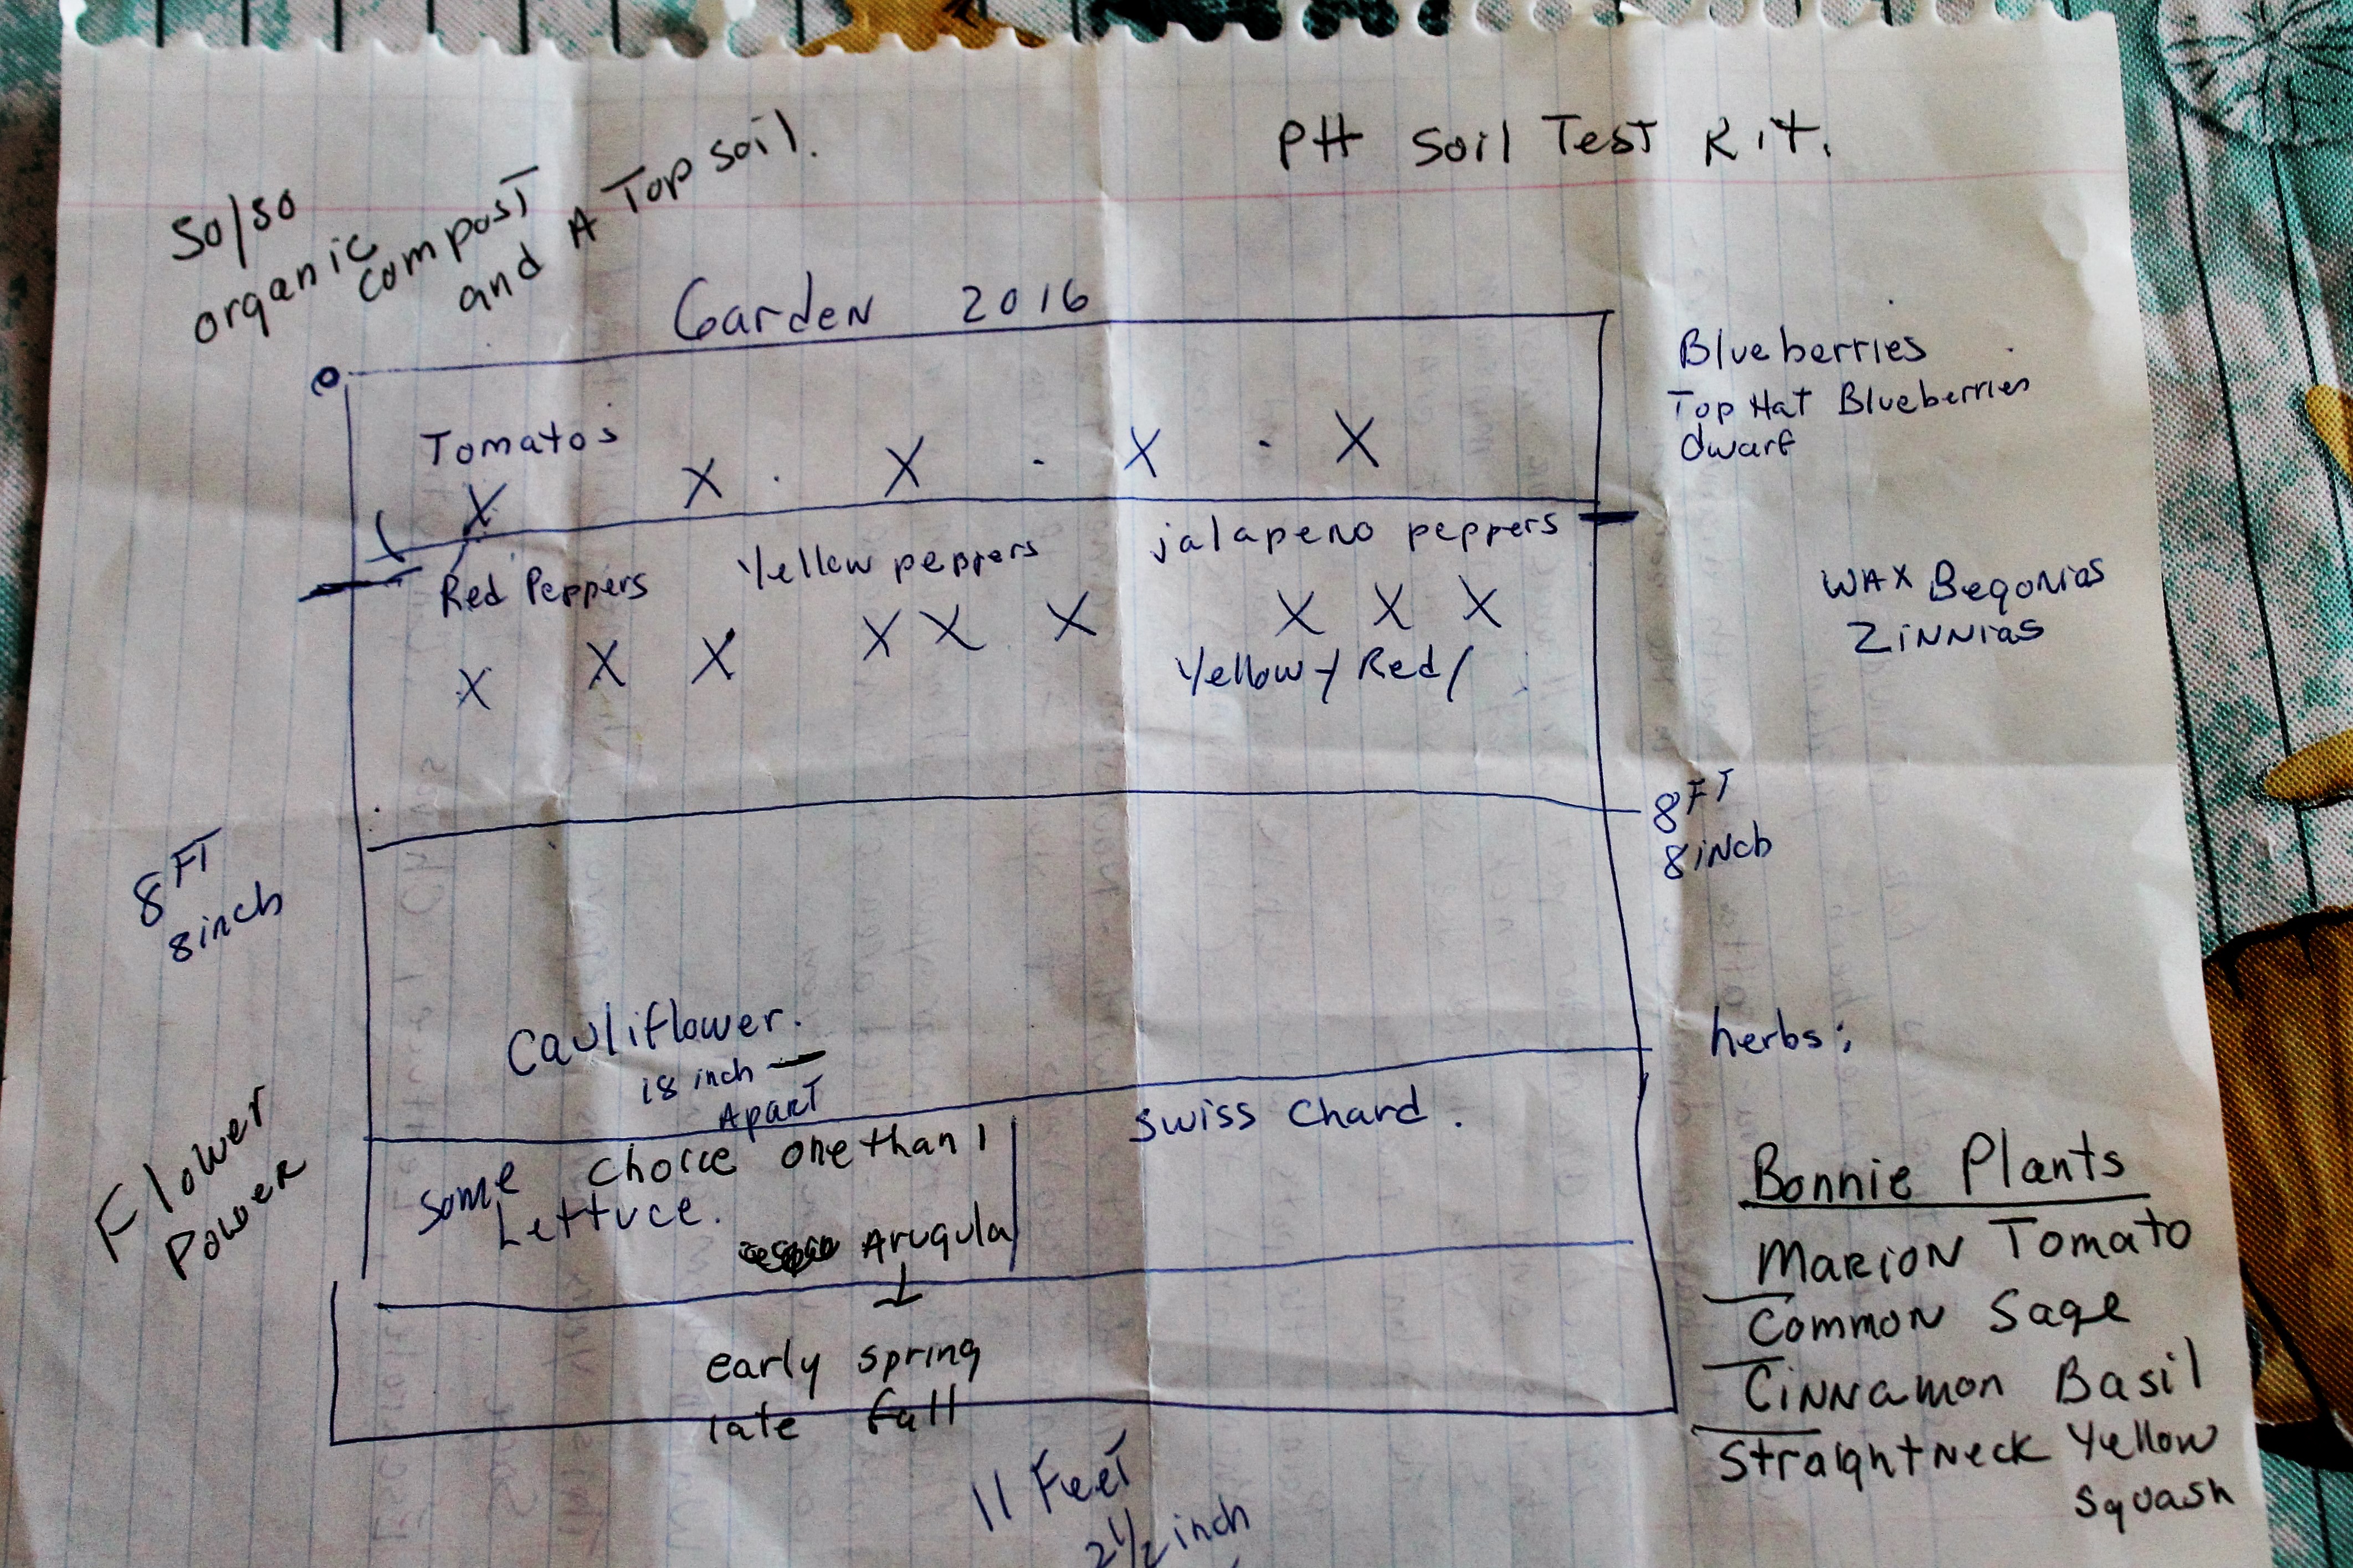 PH Soil Test Kit.
50/50
organic compost
and A Top soil.
Garden 2016
Blueberries
Top Hat Blueberries
dwarf
Tomatos
X X X X X
Red Peppers Yellow peppers jalapeno peppers
X X X X X X X X X
Yellow / Red /
Wax Begonias
Zinnias
8 FT
8 inch
8 FT
8 inch
Cauliflower.
18 inch
Apart
herbs;
Flower
Power
Some Choice one than 1
Lettuce.
Arugula
Swiss Chard.
early spring
late fall
11 Feet
2 1/2 inch
Bonnie Plants
Marion Tomato
Common Sage
Cinnamon Basil
Straightneck Yellow
Squash